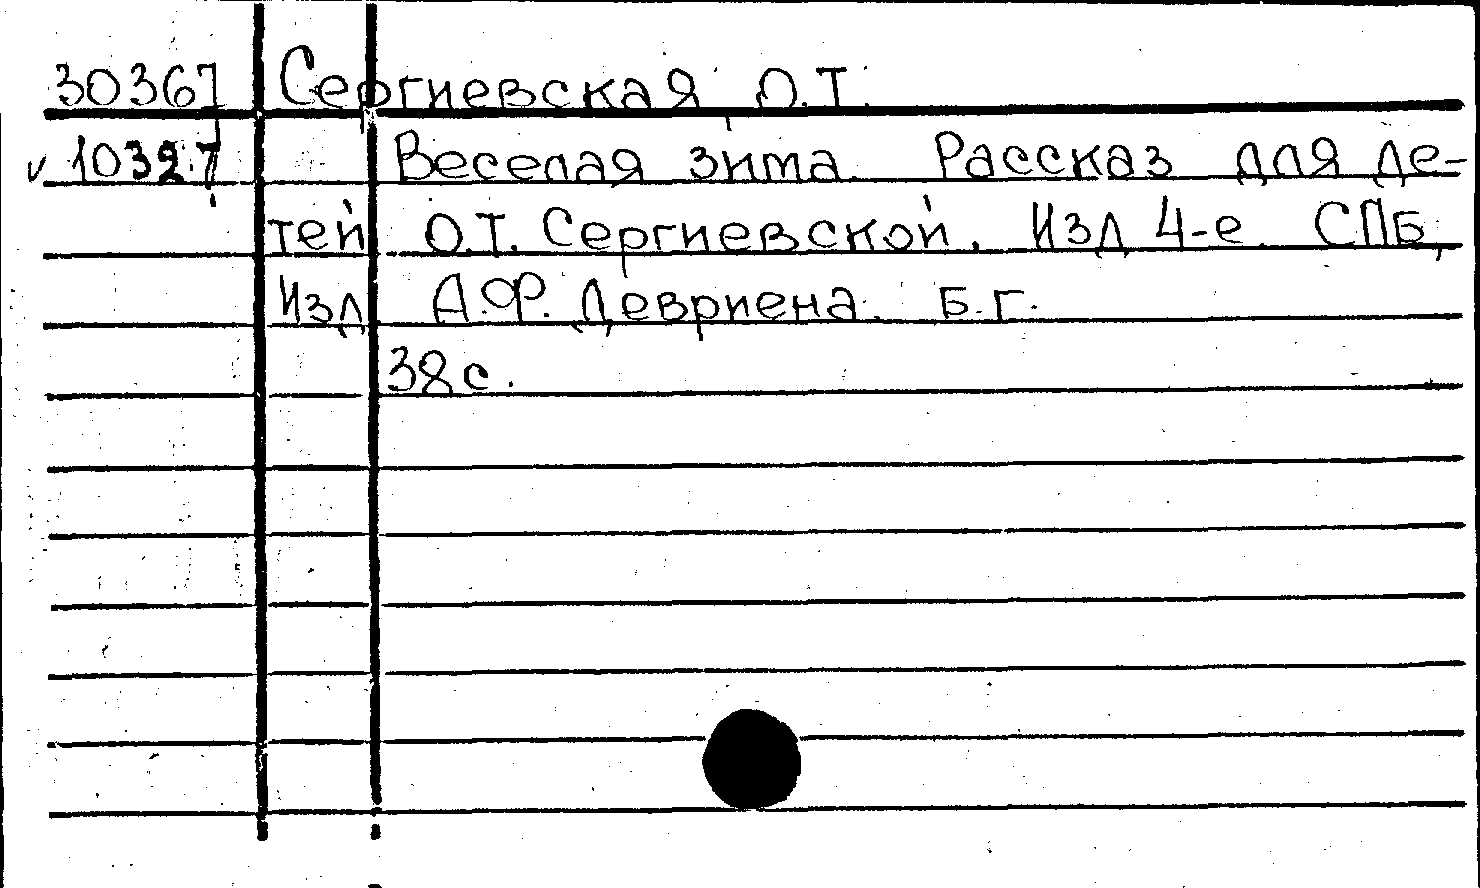 30367 Сергиевская О.Т.
v 10327 Веселая зима. Рассказ для де-
тей О.Т. Сергиевской. Изд 4-е. СПБ,
Изд. А.Ф. Девриена. Б.г.
38 с.